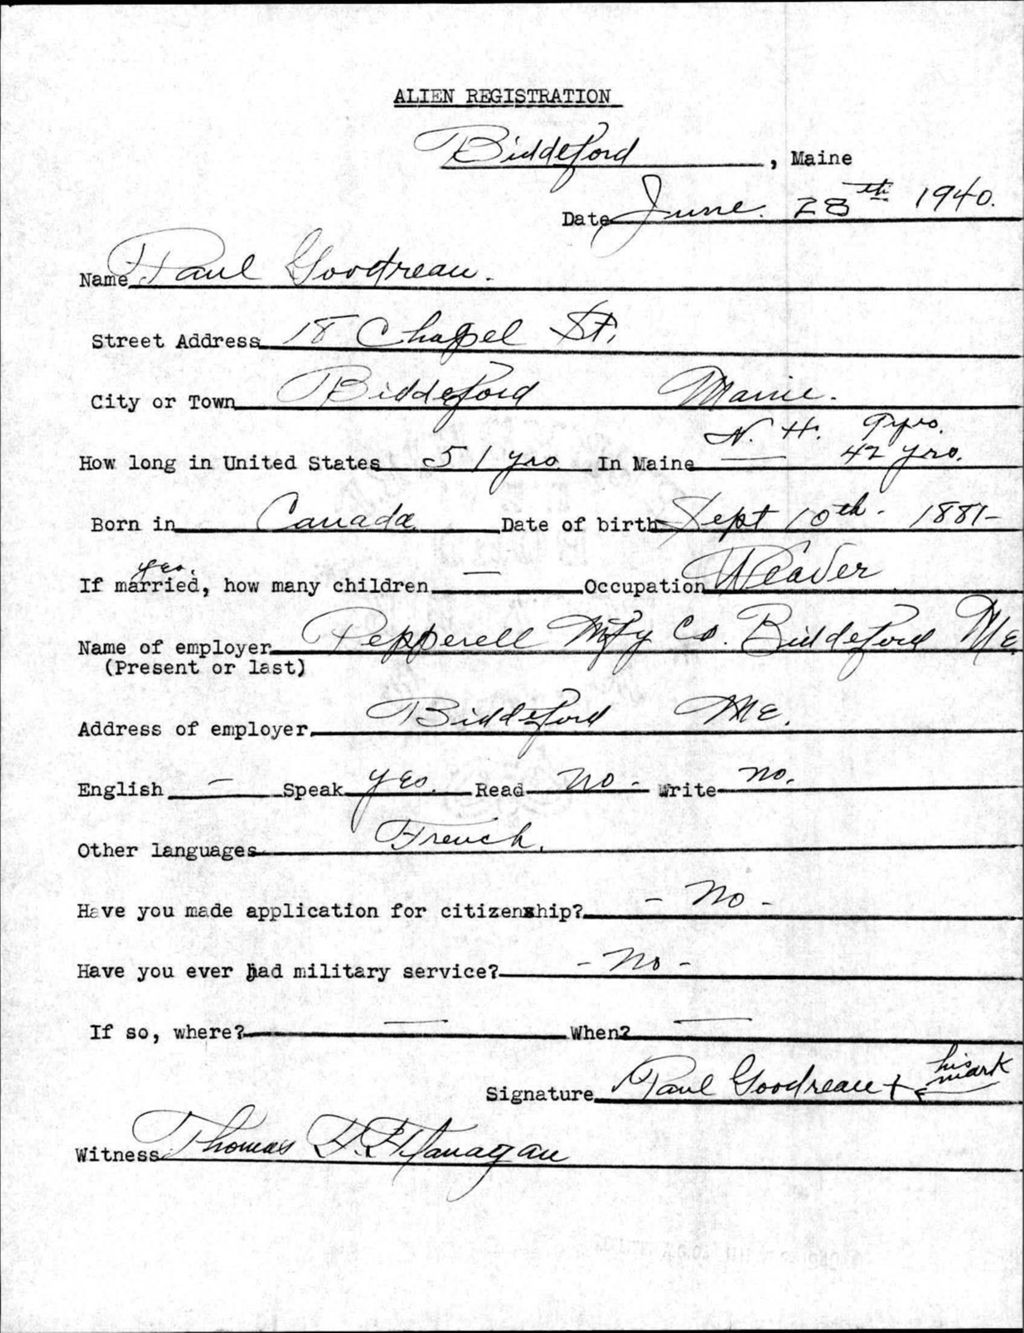 ALIEN REGISTRATION
Biddeford, Maine
Date June. 28th 1940.
Name Paul Goodreau.
Street Address 18 Chapel St.
City or Town Biddeford Maine.
N. H. 9 yrs.
How long in United States 51 yrs In Maine — 42 yrs.
Born in Canada Date of birth Sept 10th - 1881-
yes.
If married, how many children — Occupation Weaver
Name of employer Pepperell Mfg Co. Biddeford Me.
(Present or last)
Address of employer Biddeford Me.
English — Speak yes. Read no - Write no.
Other languages French.
Have you made application for citizenship? - No -
Have you ever had military service? - No -
If so, where? — When? —
his
Signature Paul Goodreau + mark
Witness Thomas F. Flanagan